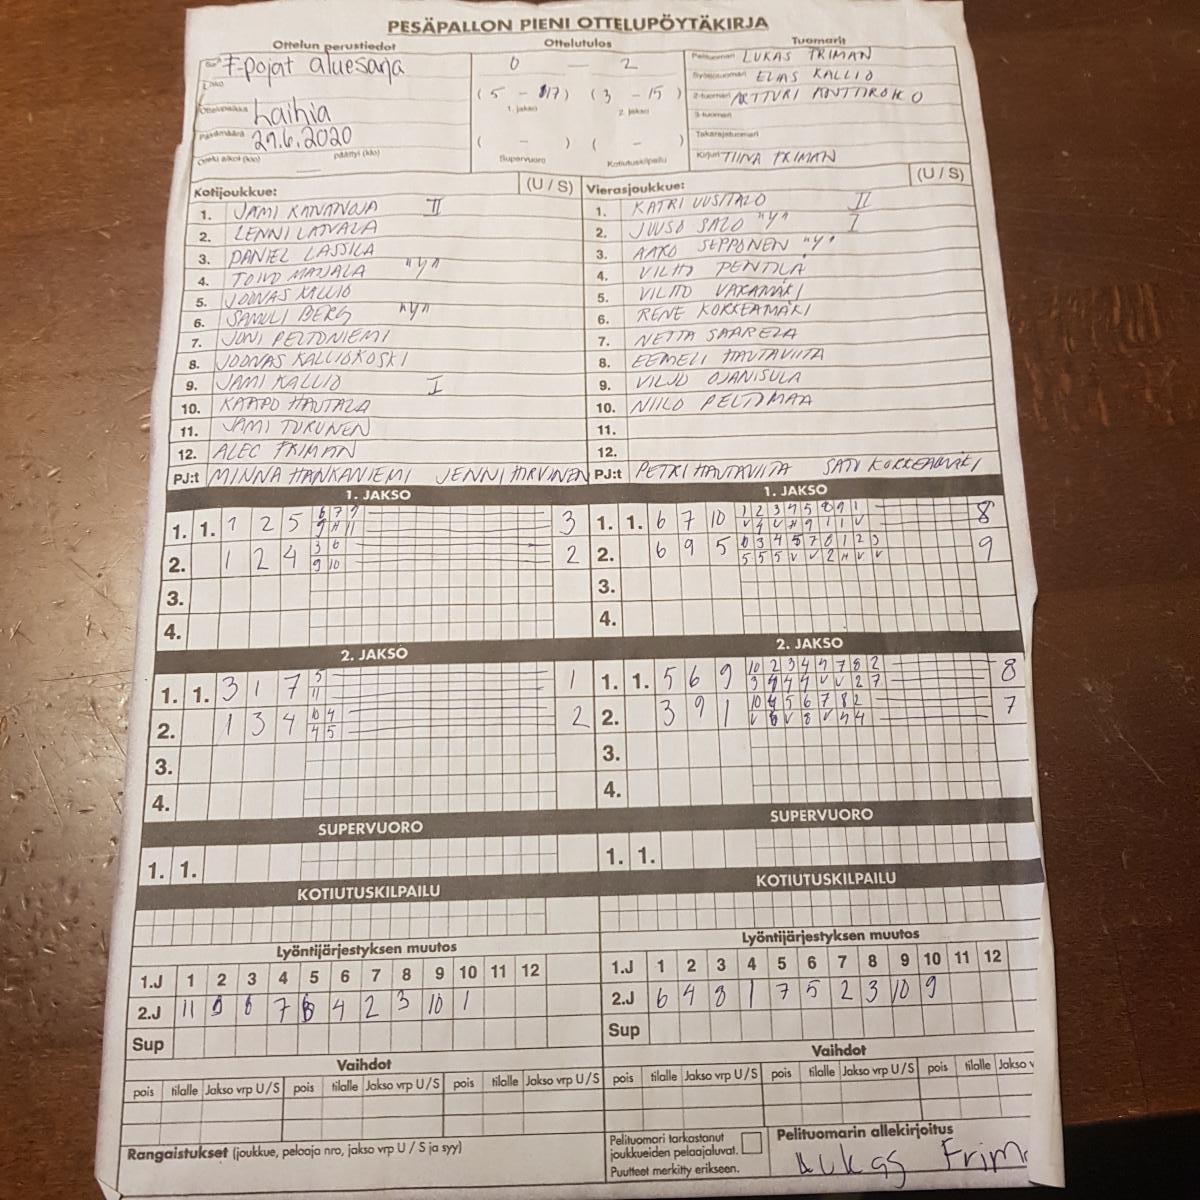 PESÄPALLON PIENI OTTELUPÖYTÄKIRJA
Ottelun perustiedot
Ottelutulos
Tuomarit
Sarja F-pojat aluesarja
0 — 2
Pelituomari LUKAS FRIMAN
Lohko
Syöttötuomari ELIAS KALLIO
(5 - 17) (3 - 15)
1. jakso 2. jakso
2-tuomari ARTTURI
3-tuomari
Ottelupaikka Laihia
Päivämäärä 29.6.2020
Takarajatuomari
( - ) ( - )
Ottelu alkoi (klo) päättyi (klo)
Supervuoro Kotiutuskilpailu
Kirjuri TIINA FRIMAN
Kotijoukkue: (U / S)
Vierasjoukkue: (U / S)
1. JAMI II
2. LENNI LATVALA
3. DANIEL LASSILA
4. TOIVO "y"
5. JOONAS KALLIO
6. SAMULI BERG "y"
7. JONI PELTONIEMI
8. JOONAS KALLIOKOSKI
9. JAMI KALLIO I
10. KAAPO HAUTALA
11. JAMI TURUNEN
12. ALEC FRIMAN
PJ:t MINNA HANKANIEMI JENNI HIRVINEN
1. KATRI UUSITALO II
2. JUUSO SALO "y" I
3. AARO SEPPONEN "y"
4. VILHO PENTTILÄ
5. VILHO
6. RENE KORKEAMÄKI
7. NETTA SAARELA
8. EEMELI HAUTAVIITA
9. VILJO OJANISULA
10. NIILO PELTOMAA
11.
12.
PJ:t PETRI HAUTAVIITA SATU KORKEAMÄKI
1. JAKSO
1. 1. 1 2 5 6 7 9 3
9 H 11
2. 1 2 4 3 6 2
9 10
3.
4.
1. JAKSO
1. 1. 6 7 10 1 2 3 4 5 8 9 1 8
2. 6 9 5 9
3.
4.
2. JAKSO
1. 1. 3 1 7 5 1
11
2. 1 3 4 10 4 2
4 5
3.
4.
2. JAKSO
1. 1. 5 6 9 10 2 3 4 7 8 2 8
2. 3 9 1 7
3.
4.
SUPERVUORO
1. 1.
SUPERVUORO
1. 1.
KOTIUTUSKILPAILU
KOTIUTUSKILPAILU
Lyöntijärjestyksen muutos
1.J 1 2 3 4 5 6 7 8 9 10 11 12
2.J 11 6 7 4 2 3 10 1
Sup
Lyöntijärjestyksen muutos
1.J 1 2 3 4 5 6 7 8 9 10 11 12
2.J 6 4 8 1 7 5 2 3 10 9
Sup
Vaihdot
pois tilalle Jakso vrp U / S pois tilalle Jakso vrp U / S pois tilalle Jakso vrp U / S
Vaihdot
pois tilalle Jakso vrp U / S pois tilalle Jakso vrp U / S pois tilalle Jakso v
Rangaistukset (joukkue, pelaaja nro, jakso vrp U / S ja syy)
Pelituomari tarkastanut
joukkueiden pelaajaluvat.
Puutteet merkitty erikseen.
Pelituomarin allekirjoitus
Lukas Frim